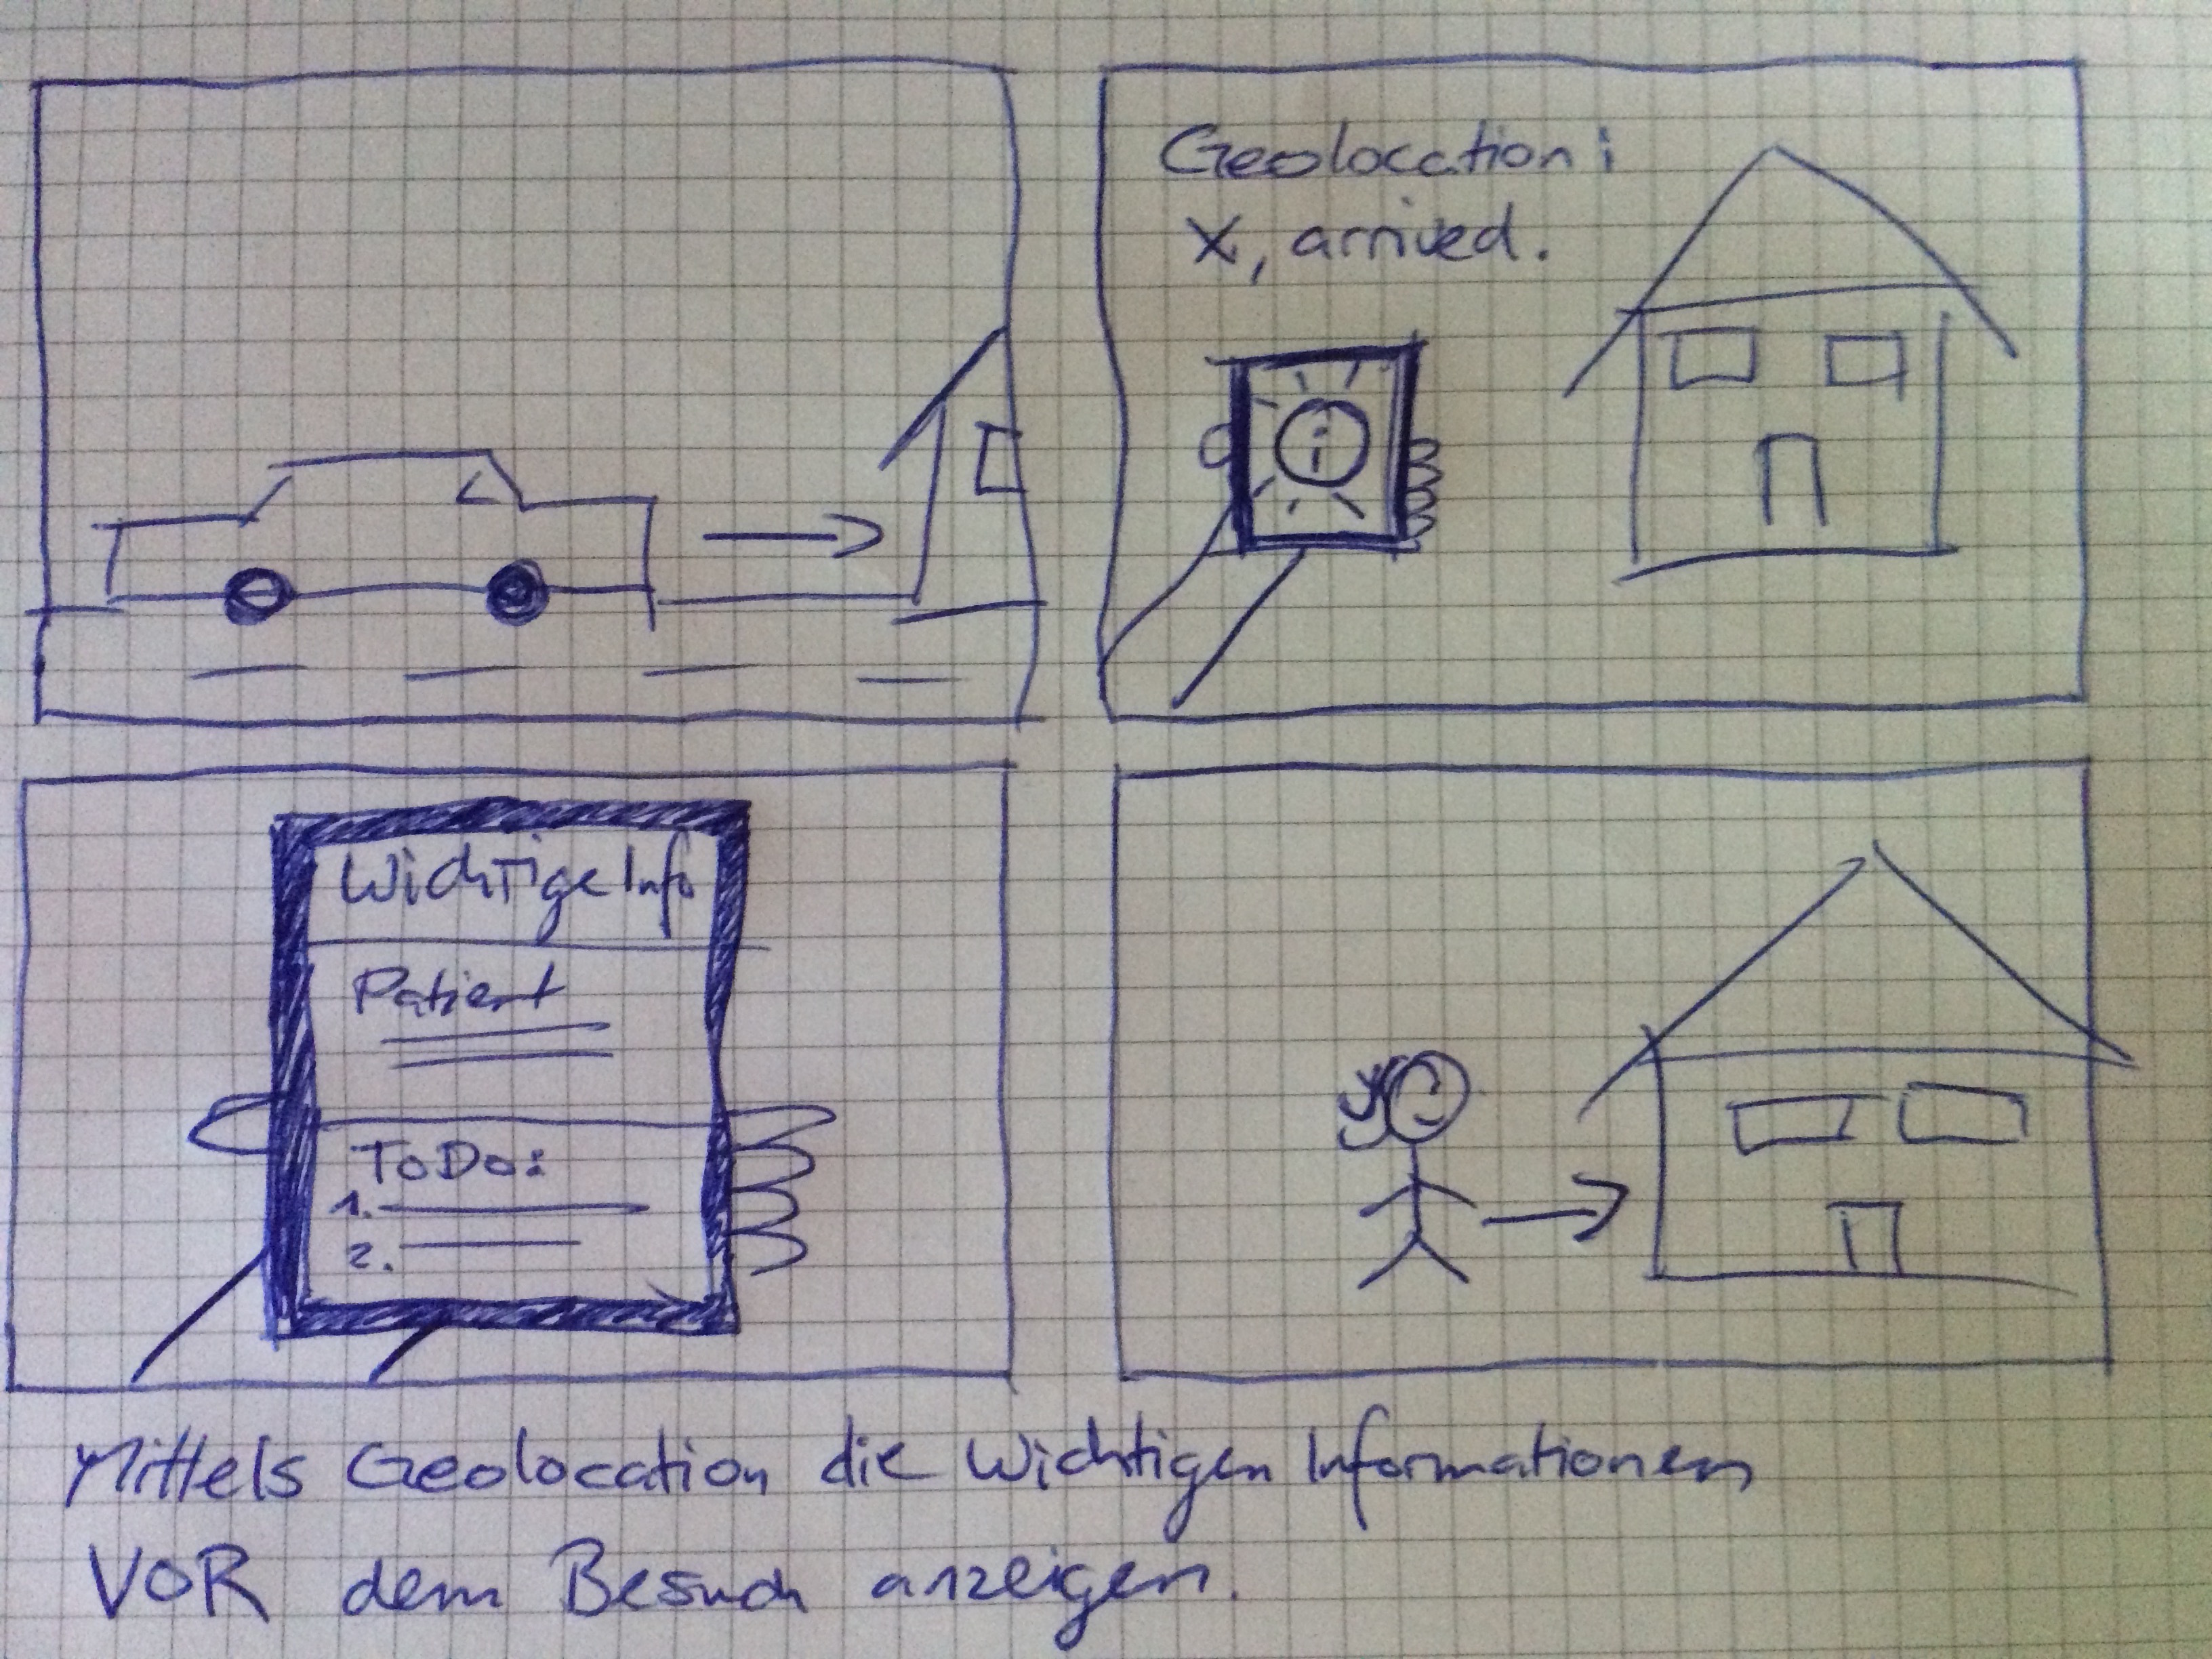 Geolocation:
X, arrived.
i
Wichtige Info
Patient
ToDo:
1.
2.
Mittels Geolocation die wichtigen Informationen
VOR dem Besuch anzeigen.